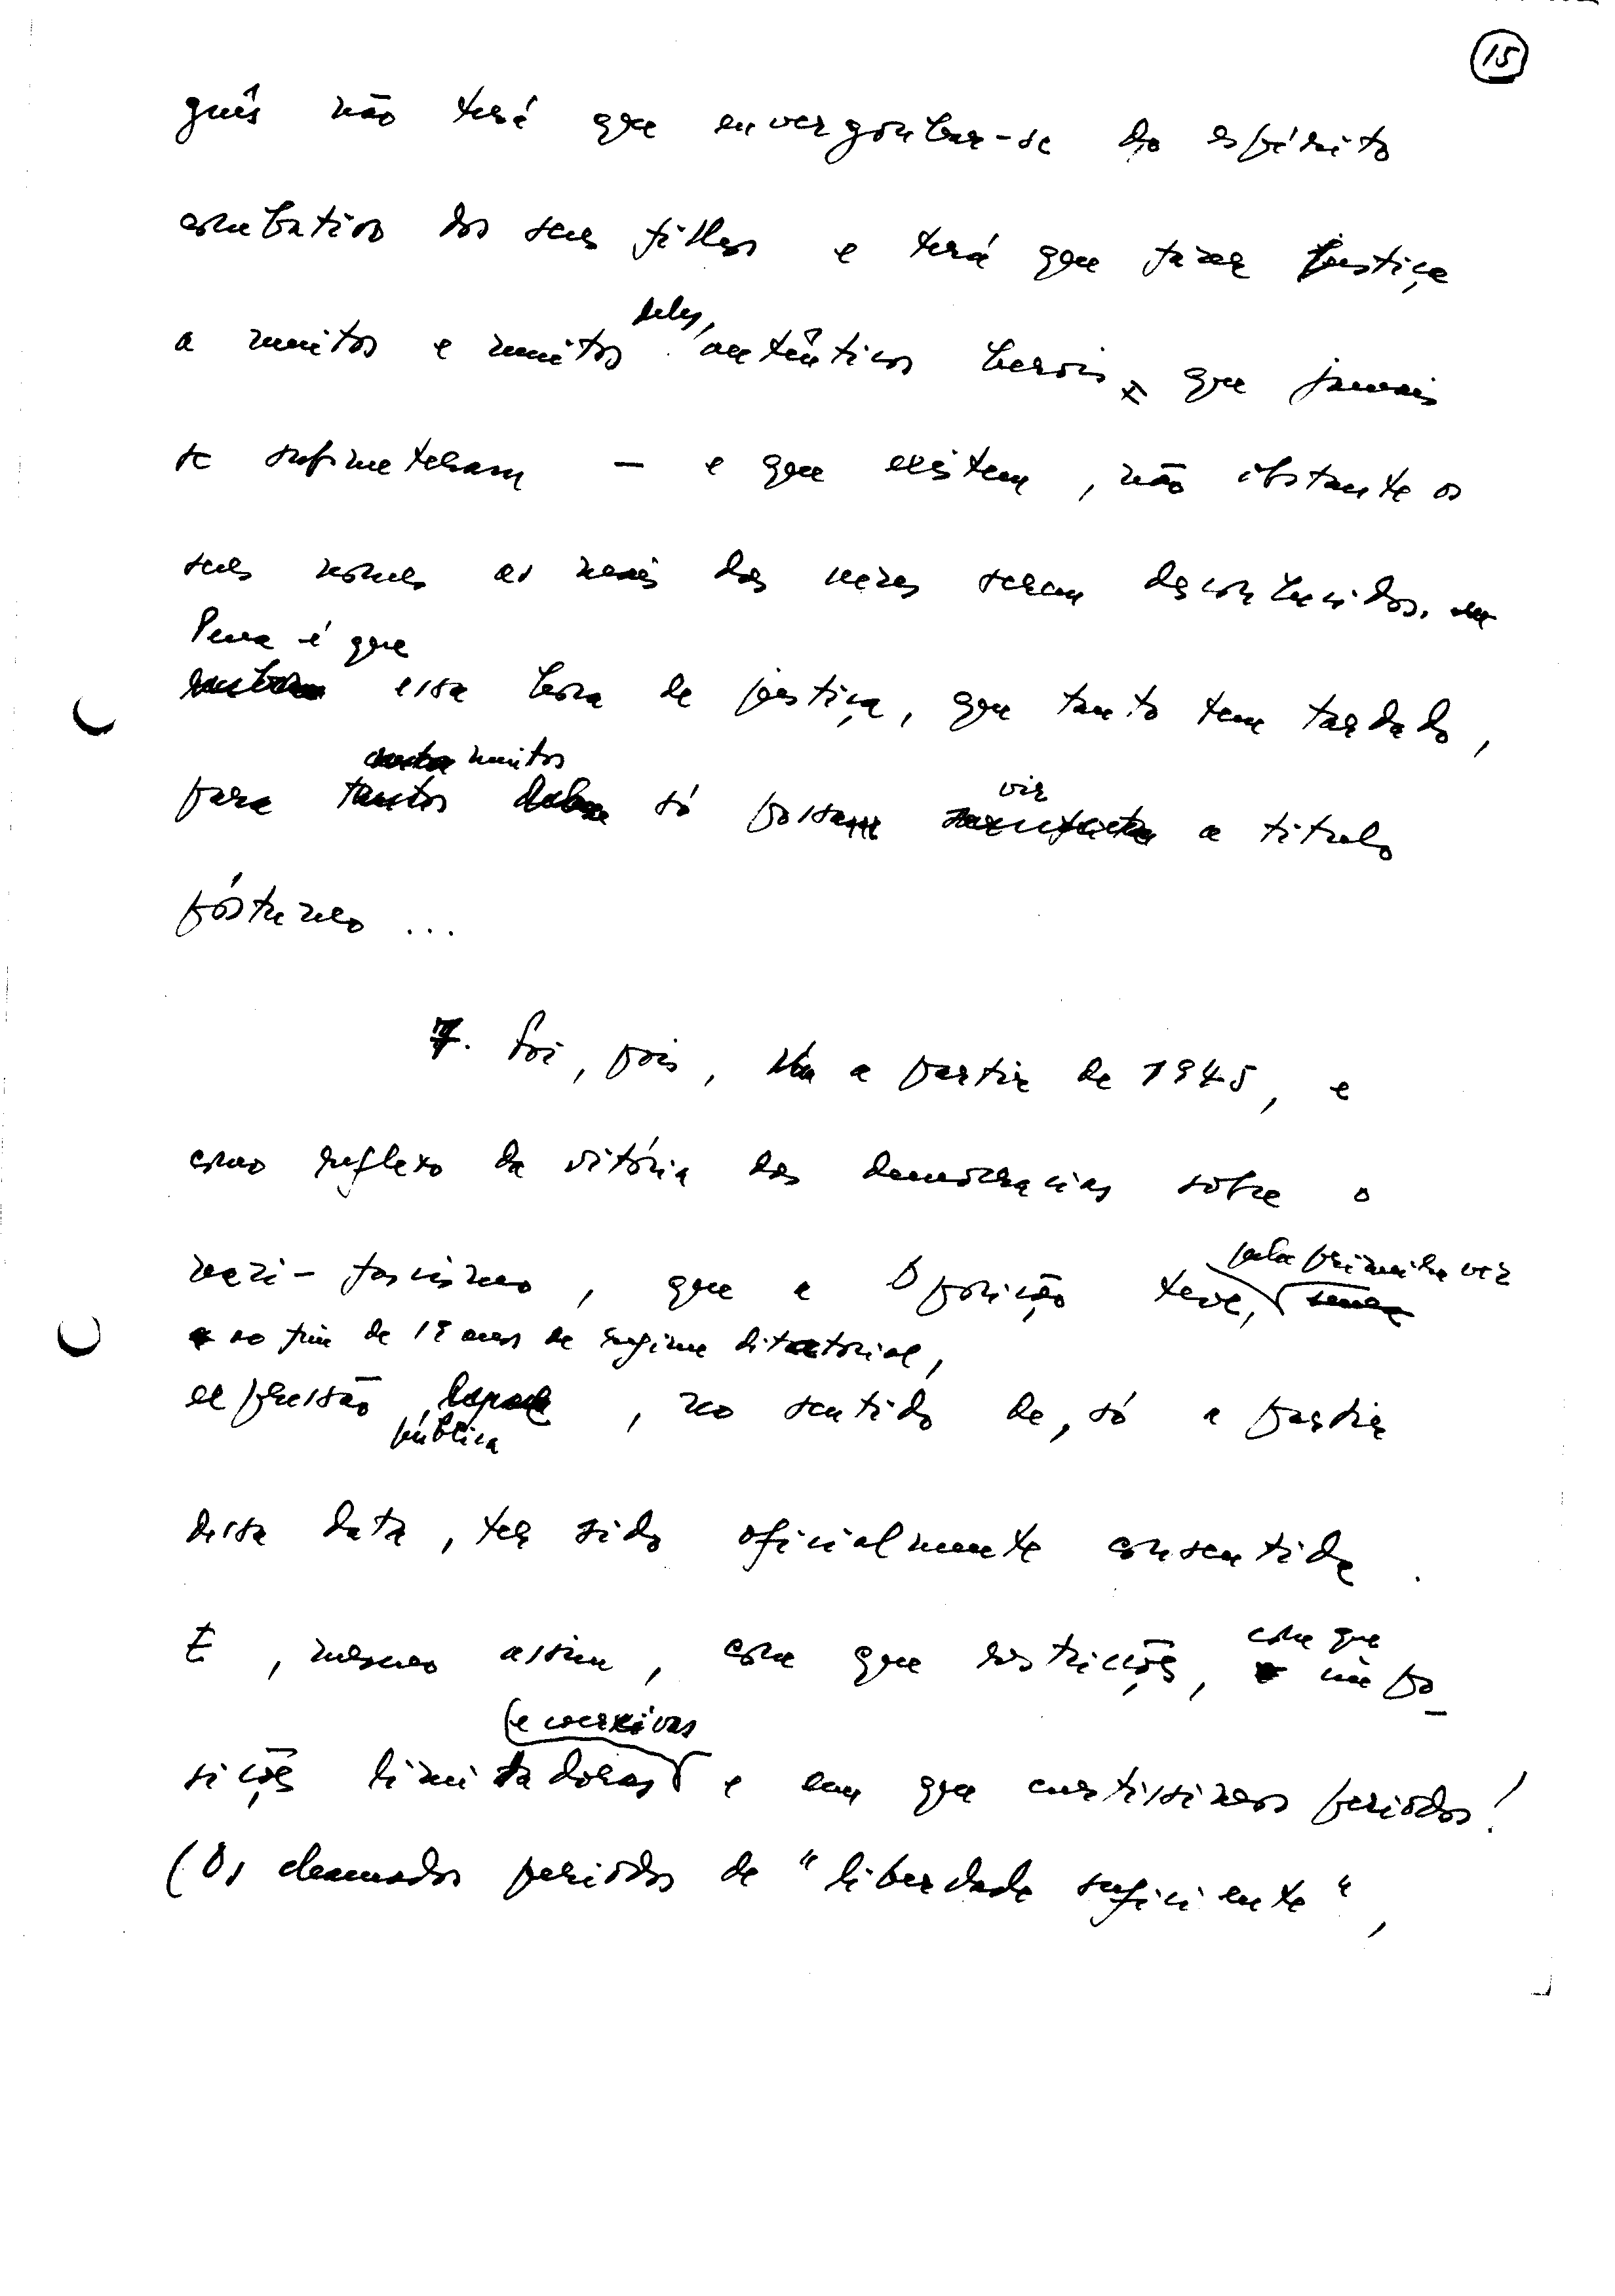 15
guês não terá que envergonhar-se do espírito
combativo dos seus filhos e terá que fazer justiça
deles,
a muitos e muitos autênticos herois que jamais
se submeteram — e que existem, não obstante os
seus nomes as mais das vezes serem desconhecidos.
Pena é que
essa hora de justiça, que tanto tem tardado,
muitos
vir
para tantos só possa a título
póstumo ...
7. Foi, pois, a partir de 1945, e
como reflexo da vitória das democracias sobre o
pela primeira vez
nazi-fascismo, que a Oposição teve,
ao fim de 19 anos de regime ditatorial,
expressão , no sentido de, só a partir
pública
dessa data, ter sido oficialmente consentida.
com que
E, mesmo assim, com que restrições, impo-
(e coercivas
sições limitadoras e em que curtissimos periodos!
(Os chamados periodos de "liberdade suficiente",